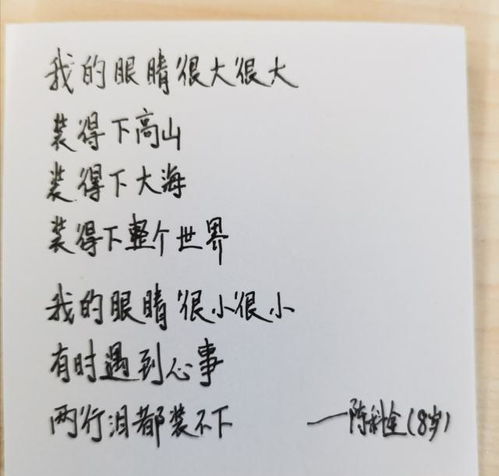 我的眼睛很大很大
装得下高山
装得下大海
装得下整个世界
我的眼睛很小很小
有时遇到心事
两行泪都装不下
——陈科全(8岁)